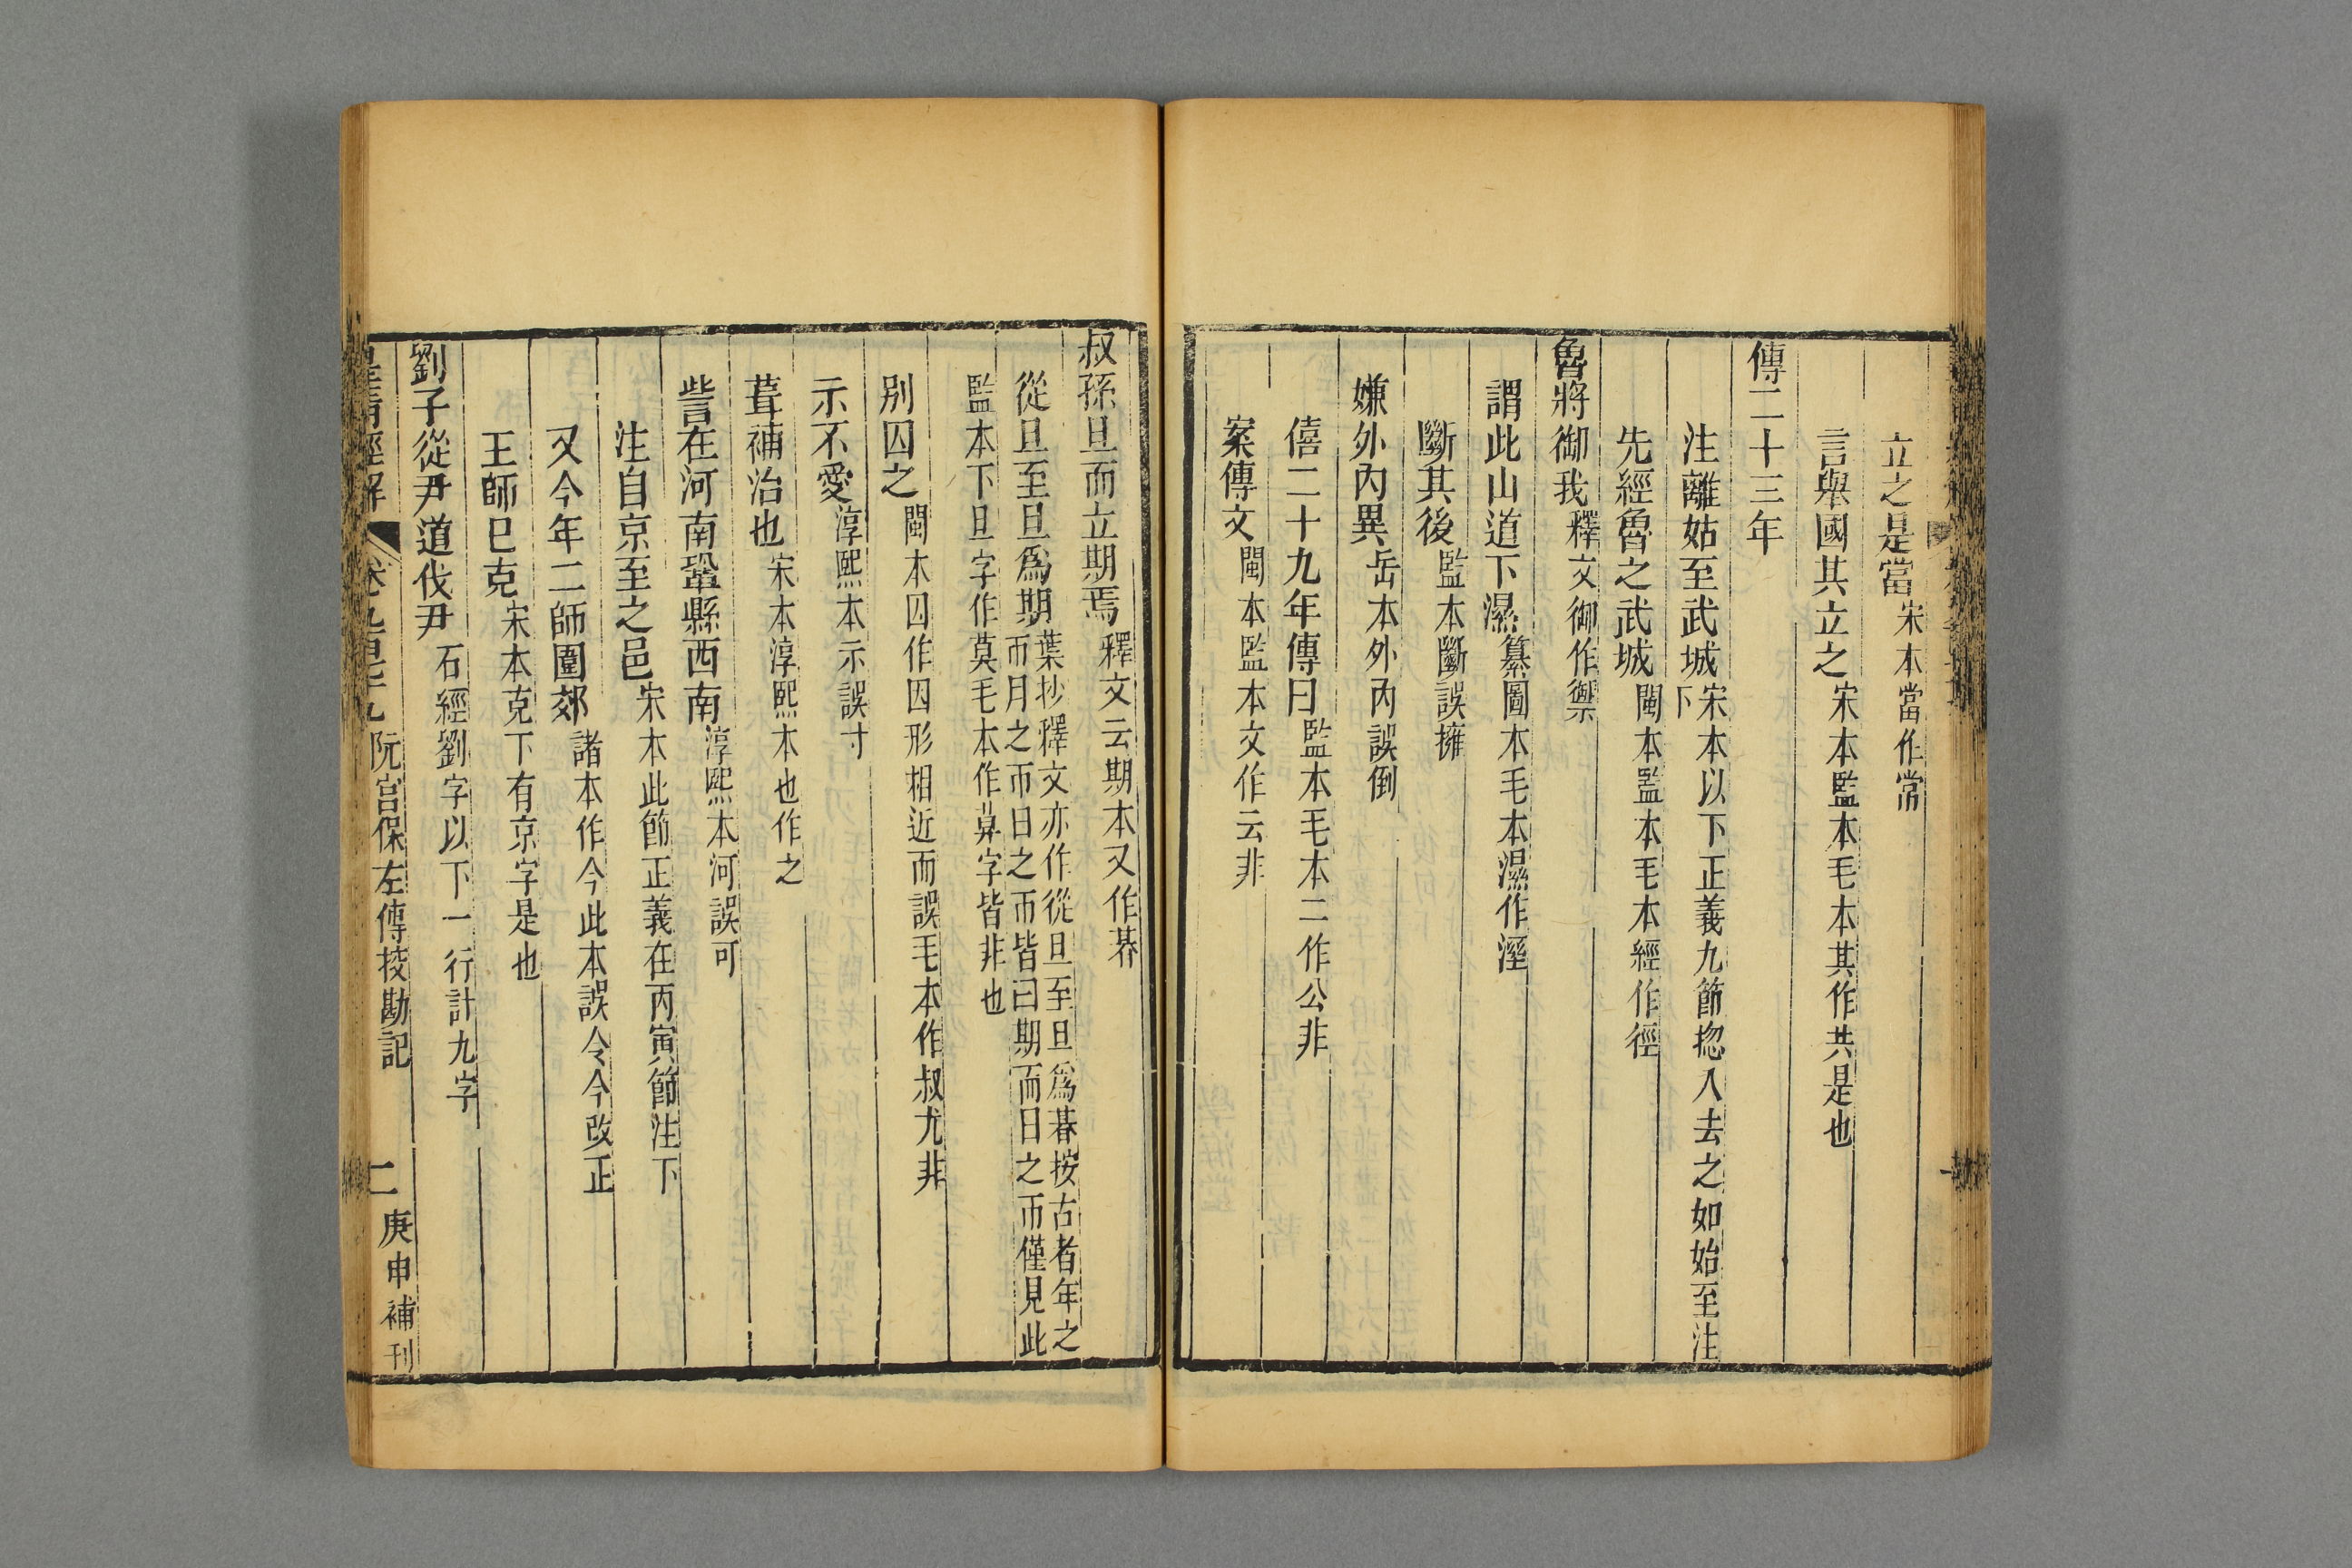 立之是當宋本當作常
言舉國其立之宋本監本毛本其作共是也
傳二十三年
注離姑至武城宋本以下正義九節揔入去之如始至注下
先經魯之武城閩本監本毛本經作徑
魯將御我釋文御作禦
謂此山道下濕纂圖本毛本濕作溼
斷其後監本斷誤擁
嫌外內異岳本外內誤倒
僖二十九年傳曰監本毛本二作公非
案傳文閩本監本文作云非
叔孫旦而立期焉釋文云期本又作朞
從旦至旦爲期葉抄釋文亦作從旦至旦爲朞按古者年之帀月之帀日之帀皆曰期而日之帀僅見此
監本下旦字作莫毛本作昇字皆非也
別囚之閩本囚作因形相近而誤毛本作叔尤非
示不愛淳熙本示誤寸
葺補治也宋本淳熙本也作之
訾在河南鞏縣西南淳熙本河誤可
注自京至之邑宋本此節正義在丙寅節注下
又今年二師圍郊諸本作今此本誤令今改正
王師已克宋本克下有京字是也
劉子從尹道伐尹石經劉字以下一行計九字
皇清經解 卷九百九 阮宮保左傳挍勘記 二 庚申補刊